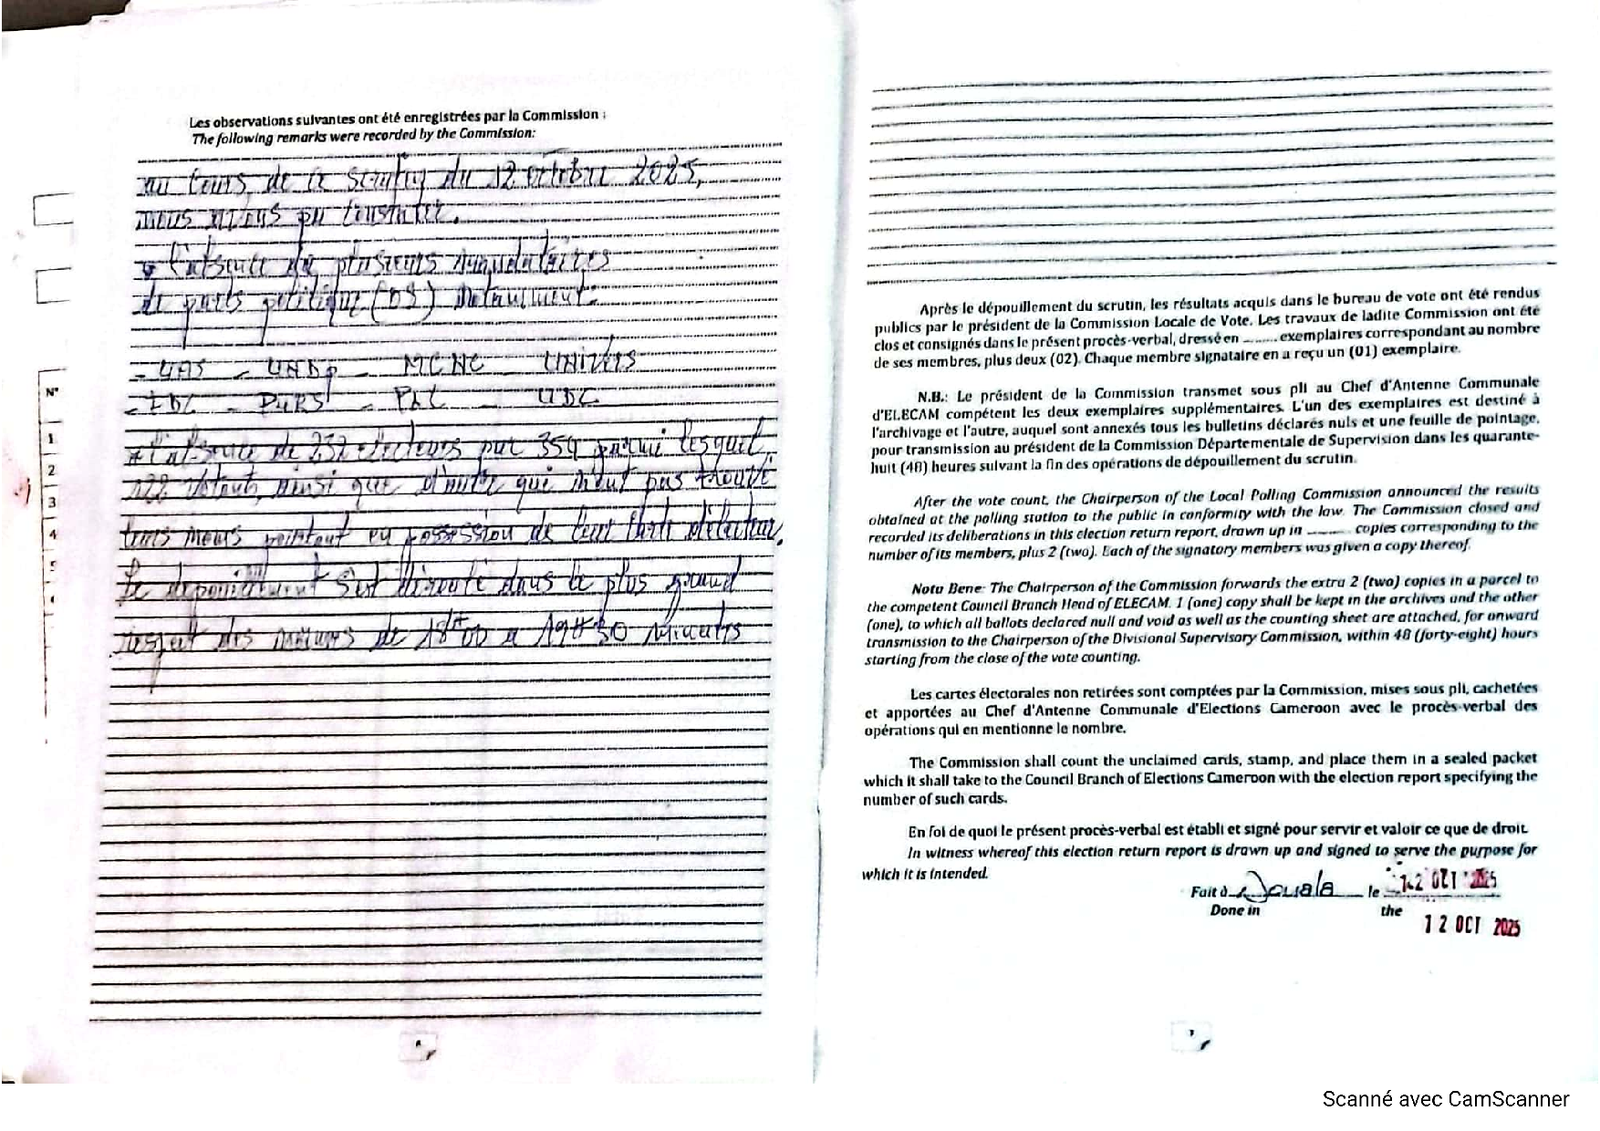 Les observations suivantes ont été enregistrées par la Commission :
The following remarks were recorded by the Commission:
au cours de ce scrutin du 12 octobre 2025,
nous avons pu constater.
l'absence de plusieurs mandataires
de partis politique (08) notamment:
- UMS - UNDP - MCNC - UNIVERS
- FDC - PURS - PAL - UDC
* l'absence de 232 electeurs sur 354 parmi lesquel
122 votants, ainsi que d'autre qui n'ont pas trouvé
leurs noms pourtant en possession de leur carte d'électeur.
Le depouillement s'est déroulé dans le plus grand
respect des mesures de 18H00 a 19H30 minutes
N°
1
2
3
4
5
6
Après le dépouillement du scrutin, les résultats acquis dans le bureau de vote ont été rendus
publics par le président de la Commission Locale de Vote. Les travaux de ladite Commission ont été
clos et consignés dans le présent procès-verbal, dressé en ........ exemplaires correspondant au nombre
de ses membres, plus deux (02). Chaque membre signataire en a reçu un (01) exemplaire.
N.B.: Le président de la Commission transmet sous pli au Chef d'Antenne Communale
d'ELECAM compétent les deux exemplaires supplémentaires. L'un des exemplaires est destiné à
l'archivage et l'autre, auquel sont annexés tous les bulletins déclarés nuls et une feuille de pointage,
pour transmission au président de la Commission Départementale de Supervision dans les quarante-
huit (48) heures suivant la fin des opérations de dépouillement du scrutin.
After the vote count, the Chairperson of the Local Polling Commission announced the results
obtained at the polling station to the public in conformity with the law. The Commission closed and
recorded its deliberations in this election return report, drawn up in ........ copies corresponding to the
number of its members, plus 2 (two). Each of the signatory members was given a copy thereof.
Nota Bene: The Chairperson of the Commission forwards the extra 2 (two) copies in a parcel to
the competent Council Branch Head of ELECAM. 1 (one) copy shall be kept in the archives and the other
(one), to which all ballots declared null and void as well as the counting sheet are attached, for onward
transmission to the Chairperson of the Divisional Supervisory Commission, within 48 (forty-eight) hours
starting from the close of the vote counting.
Les cartes électorales non retirées sont comptées par la Commission, mises sous pli, cachetées
et apportées au Chef d'Antenne Communale d'Elections Cameroon avec le procès-verbal des
opérations qui en mentionne le nombre.
The Commission shall count the unclaimed cards, stamp, and place them in a sealed packet
which it shall take to the Council Branch of Elections Cameroon with the election report specifying the
number of such cards.
En foi de quoi le présent procès-verbal est établi et signé pour servir et valoir ce que de droit.
In witness whereof this election return report is drawn up and signed to serve the purpose for
which it is intended.
Fait à Douala le 12 OCT 2025
Done in the
12 OCT 2025
6
7
Scanné avec CamScanner